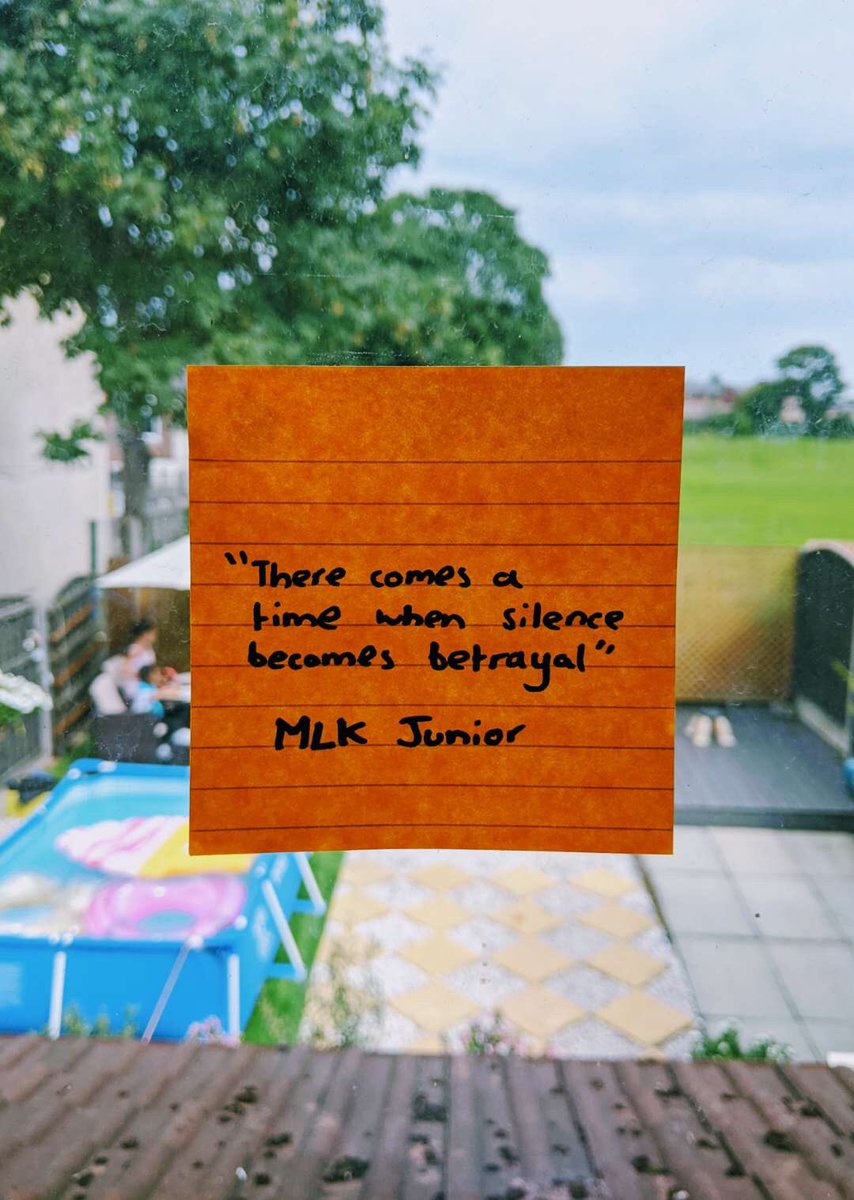 "There comes a
time when silence
becomes betrayal"
MLK Junior